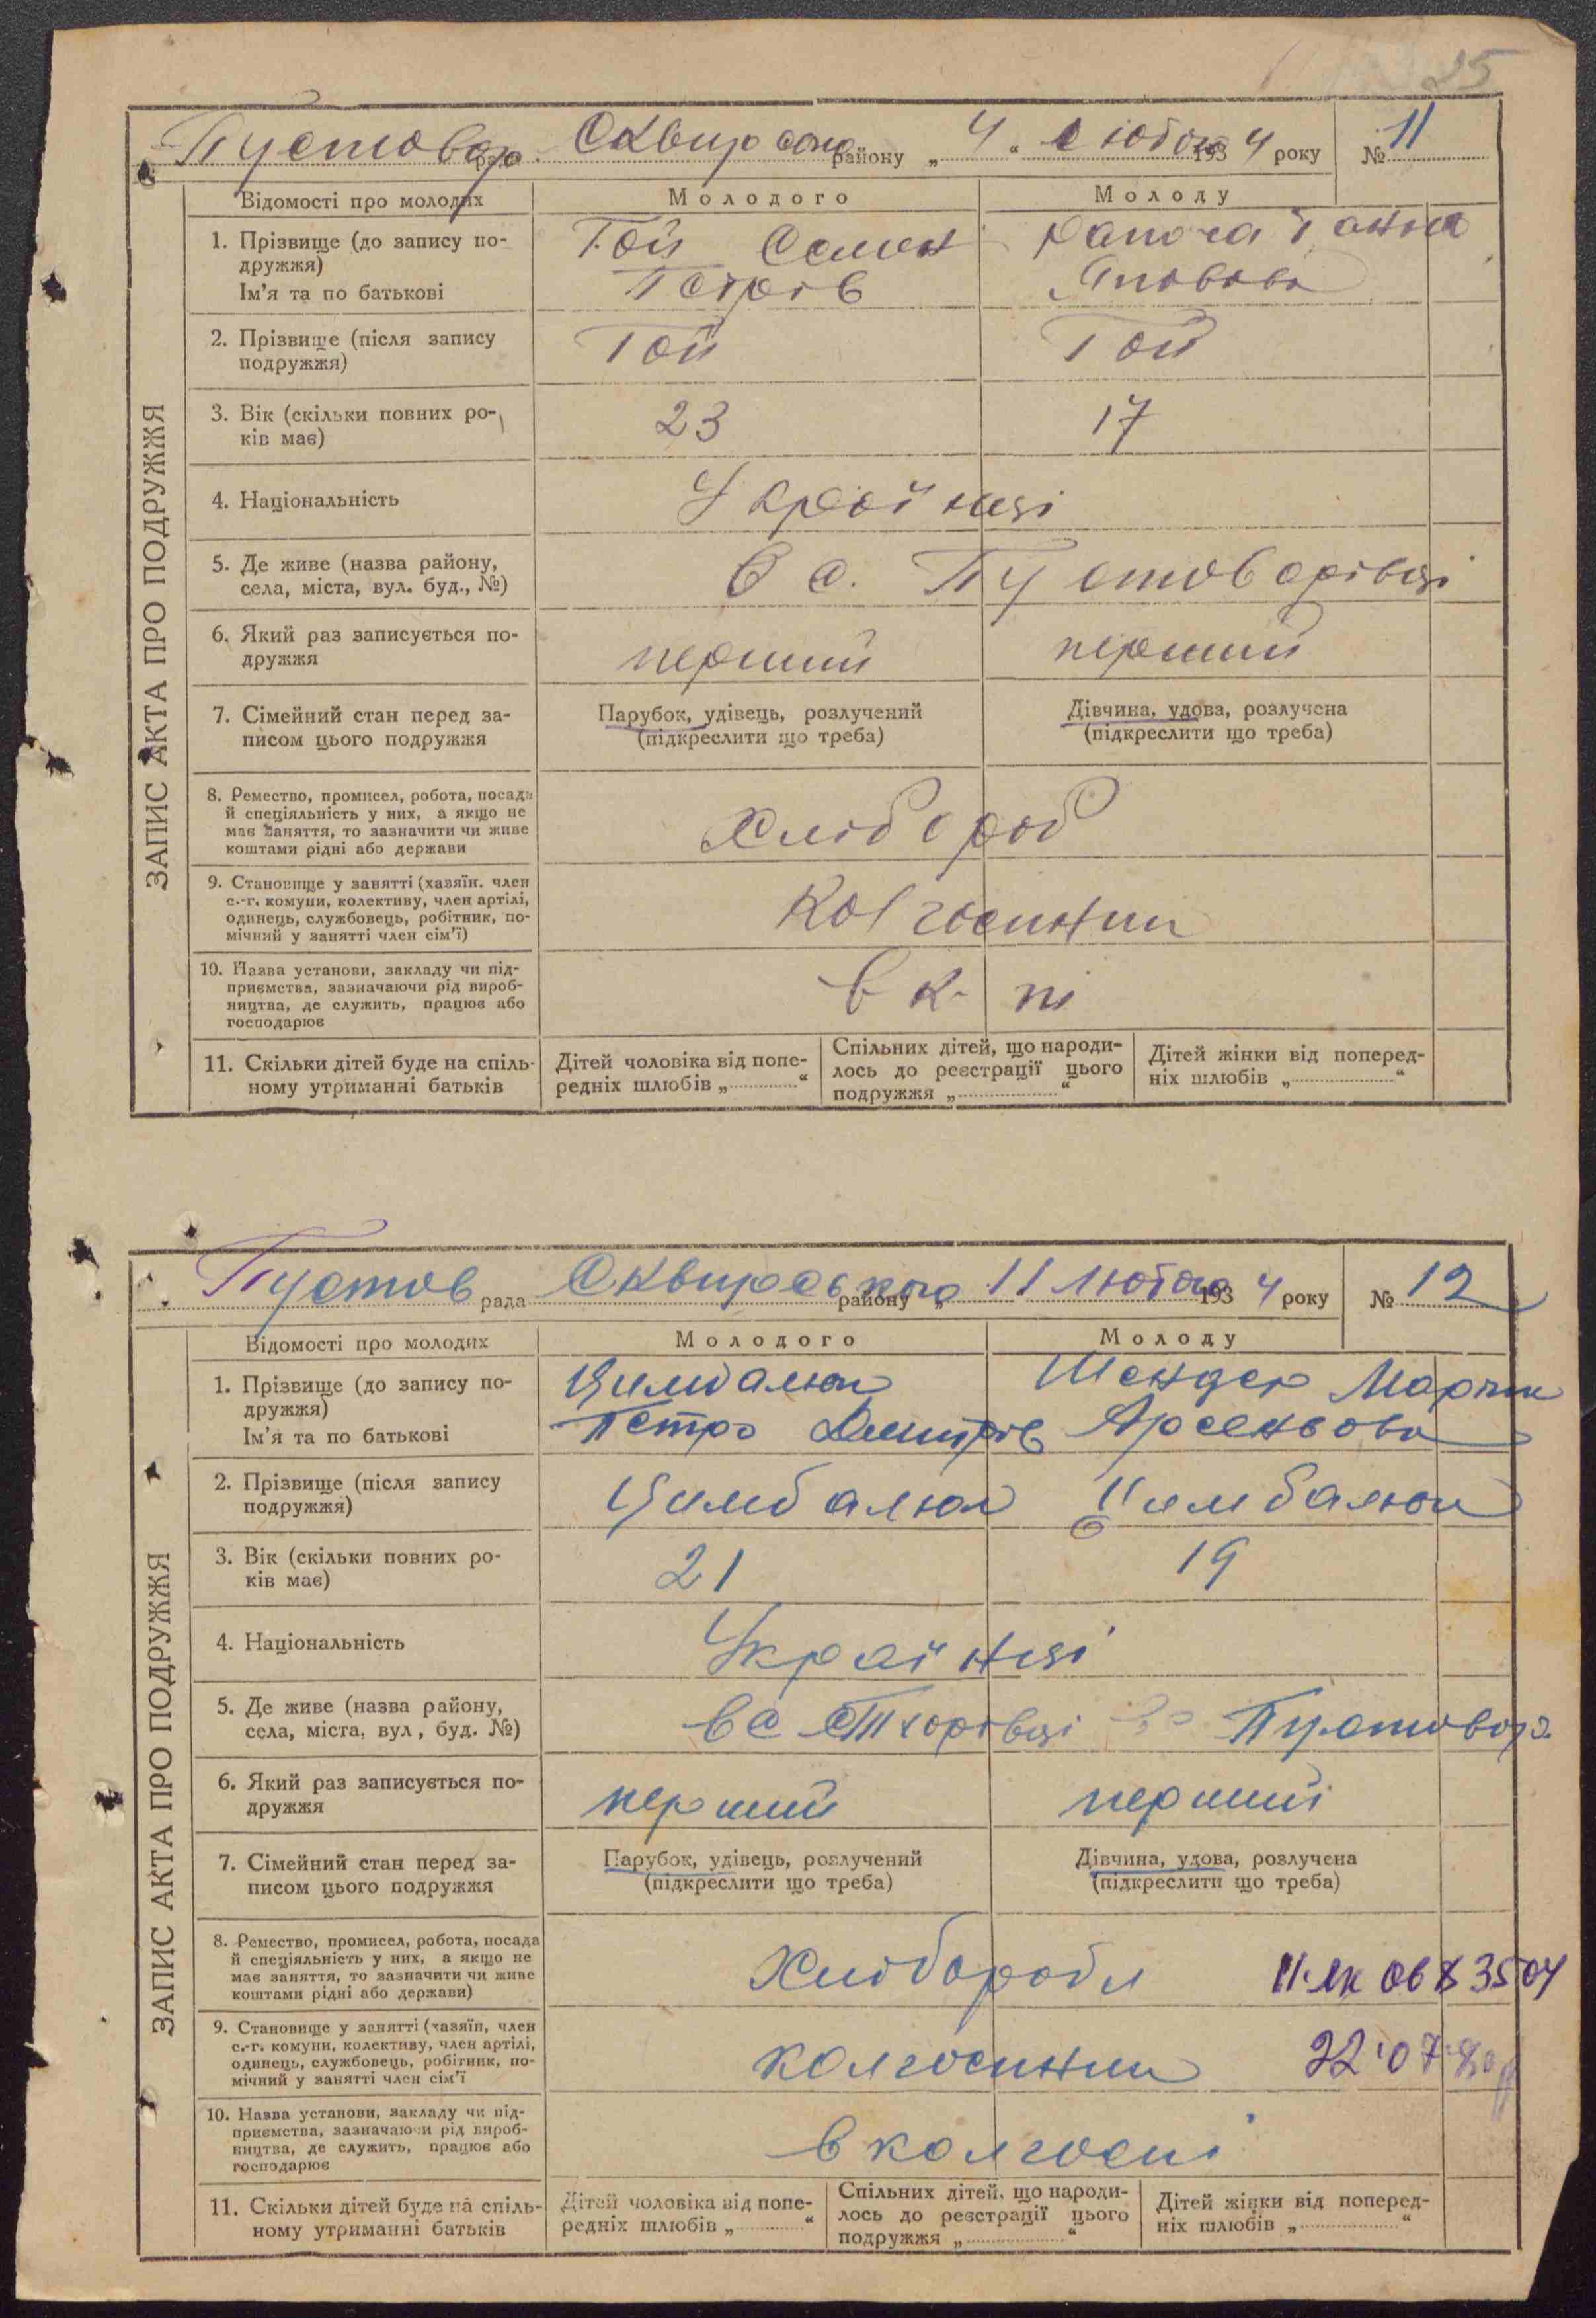 25
Пустовар рада Сквирського району „ 4 “ лютого 1934 року № 11
ЗАПИС АКТА ПРО ПОДРУЖЖЯ
Відомості про молодих Молодого Молоду
1. Прізвище (до запису по-
дружжя)
Ім’я та по батькові
Гой Семен
Петрів
Ганна
2. Прізвище (після запису
подружжя)
Гой Гой
3. Вік (скільки повних ро-
ків має)
23 17
4. Національність
Українці
5. Де живе (назва району,
села, міста, вул. буд., №)
В с. Пустоварівці
6. Який раз записується по-
дружжя
перший перший
7. Сімейний стан перед за-
писом цього подружжя
Парубок, удівець, розлучений
(підкреслити що треба)
Дівчина, удова, розлучена
(підкреслити що треба)
8. Ремество, промисел, робота, посада
й спеціяльність у них, а якщо не
має заняття, то зазначити чи живе
коштами рідні або держави
Хлібороб
9. Становище у занятті (хазяїн. член
с.-г. комуни, колективу, член артілі,
одинець, службовець, робітник, по-
мічний у занятті член сім’ї)
Колгоспники
10. Назва установи, закладу чи під-
приємства, зазначаючи рід вироб-
ництва, де служить, працює або
господарює
в к-пі
11. Скільки дітей буде на спіль-
ному утриманні батьків
Дітей чоловіка від попе-
редніх шлюбів „ “
Спільних дітей, що народи-
лось до реєстрації цього
подружжя „ “
Дітей жінки від поперед-
ніх шлюбів „ “
Пустов рада Сквирського району „ 11 лютого 1934 року № 12
ЗАПИС АКТА ПРО ПОДРУЖЖЯ
Відомості про молодих Молодого Молоду
1. Прізвище (до запису по-
дружжя)
Ім’я та по батькові
Цимбалюк
Петро Дмитрів
Шендер
Арсеньова
2. Прізвище (після запису
подружжя)
Цимбалюк Цимбалюк
3. Вік (скільки повних ро-
ків має)
21 19
4. Національність
Українці
5. Де живе (назва району,
села, міста, вул, буд. №)
в с Пустовар
6. Який раз записується по-
дружжя
перший перший
7. Сімейний стан перед за-
писом цього подружжя
Парубок, удівець, розлучений
(підкреслити що треба)
Дівчина, удова, розлучена
(підкреслити що треба)
8. Ремество, промисел, робота, посада
й спеціяльність у них, а якщо не
має заняття, то зазначити чи живе
коштами рідні або держави)
Хлібороби
9. Становище у занятті (хазяїн, член
с.-г. комуни, колективу, член артілі,
одинець, службовець, робітник, по-
мічний у занятті член сім’ї
колгоспники 22.07.80
10. Назва установи, закладу чи під-
приємства, зазначаючи рід вироб-
ництва, де служить, працює або
господарює
в колгоспі
11. Скільки дітей буде на спіль-
ному утриманні батьків
Дітей чоловіка від попе-
редніх шлюбів „ “
Спільних дітей, що народи-
лось до реєстрації цього
подружжя „ “
Дітей жінки від поперед-
ніх шлюбів „ “